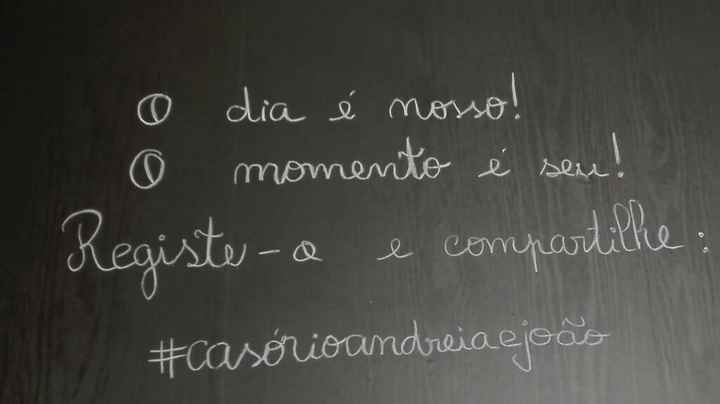 O dia é nosso!
O momento é seu!
Registe-o e compartilhe:
#casórioandreiaejoão